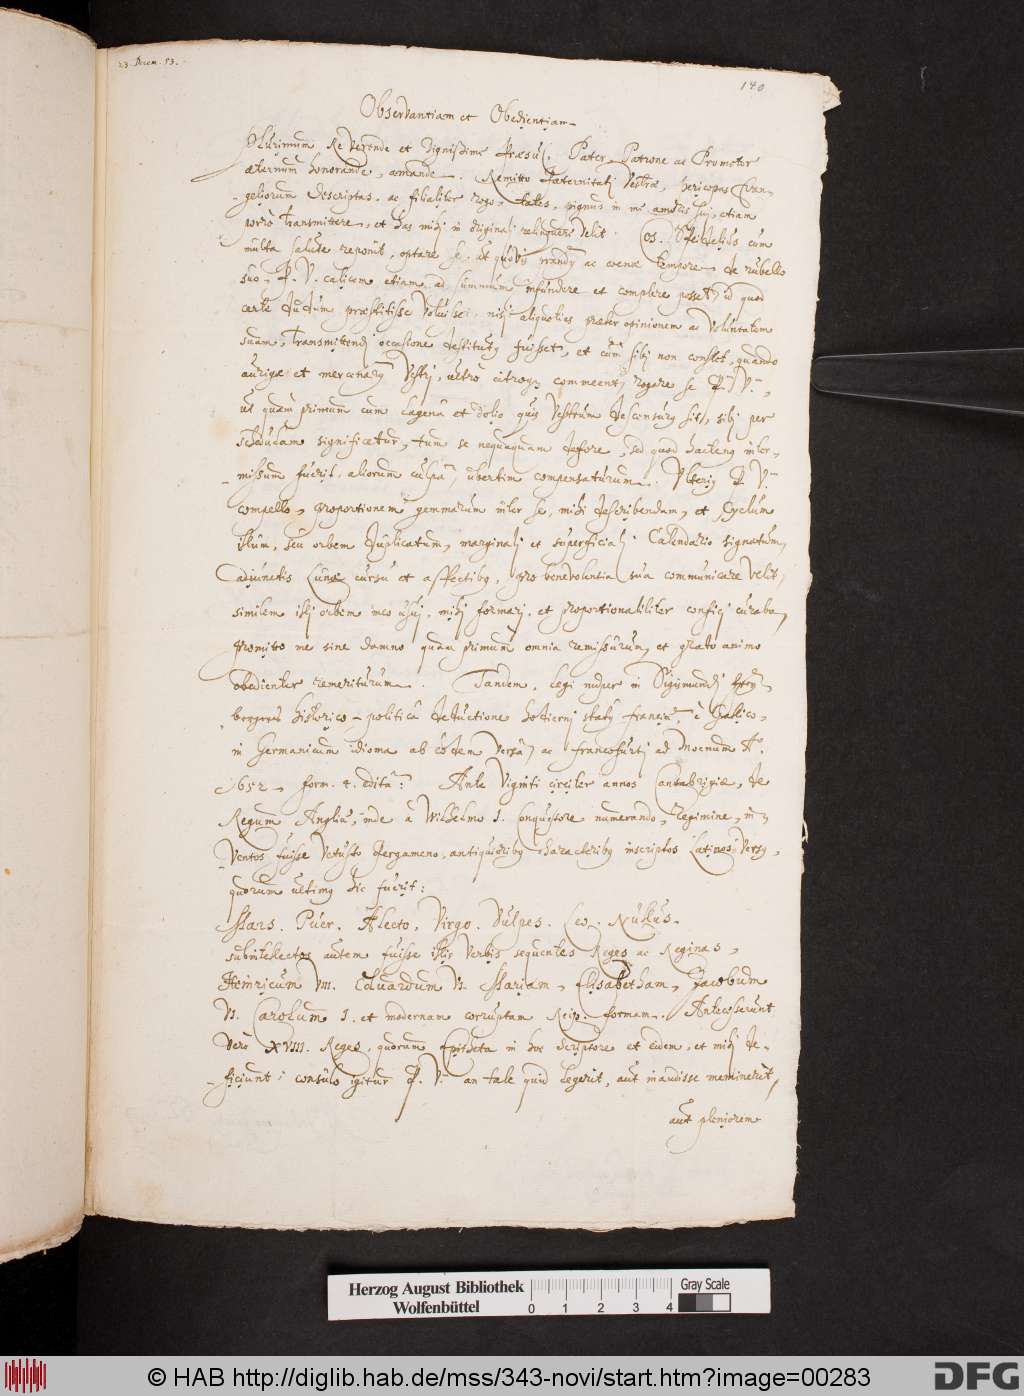 23. Decem. 53.
140
Observantiam et Obedientiam
Plurimum Reverende et Dignissime Præsul. Pater, Patrone ac Promotor
æternum honorande, amande. Remitto Paternitati Vestræ, pericopas Evan-
geliorum descriptas, ac filialiter rogo, tales, pignus in me amoris sui, etiam
porro transmittere, et has mihi in originali relinquere velit. Cos. P. Fidelius cum
multa salute reponit, optare se, ut quovis prandij ac coenæ tempore, de rubello
suo P. V. calicem etiam ad summum infundere et complere posset, id quod
certe dudum præstitisse voluisset, nisi aliquoties præter opinionem ac voluntatem
suam, transmittendi occasione destitutus fuisset, et cum sibi non constet, quando
aurigæ et mercenarij Vestri, ultro citroque commeent, rogare se P. V.
ut quam primum cum lagena et dolio quis Vestrum descensurus sit, sibi per
schedulam significetur, tum se nequaquam defore, sed quod hactenus inter-
missum fuerit, aliorum culpa, ubertim compensaturum. Ulterius P. V.
compello, proportionem gemmarum inter se, mihi describendam, et Cyclum
illum, seu orbem duplicatum, marginali et superficiali Calendario signatum,
adjunctis Lunæ cursu et affectibus, pro benevolentia sua communicare velit,
similem isti orbem meo usui, mihi formari, et proportionaliter confici curabo,
promitto me sine damno quam primum omnia remissurum, et grato animo
obedienter remeriturum. Tandem, legi nuper in Sigismundi
bergers historico-politica deductione hodierni status Franciæ, è Gallico,
in Germanicum idioma ab eodem versa, ac Francofurti ad Moenum Aº.
1652, form. 4. edita: Ante Viginti circiter annos Cantabrigiæ, de
Regum Angliæ, inde à Wilhelmo I. Conquestore numerando, Regimine, in-
ventos fuisse vetusto Pergameno, antiquioribus characteribus inscriptos Latinos Versus,
quorum ultimus hic fuerit:
Mars. Puer. Alecto. Virgo. Vulpes. Leo. Nullus.
subintellectos autem fuisse istis verbis sequentes Reges ac Reginas,
Heinricum VIII. Eduardum VI. Mariam, Elisabetham, Jacobum
VI. Carolum I. et modernam corruptam Reip. formam. Antecesserunt
vero XVIII. Reges, quorum Epitheta in hoc Scriptore et eidem, et mihi de-
ficiunt: consulo igitur P. V. an tale quid legerit, aut inaudisse meminerit,
aut pleniorem
Herzog August Bibliothek
Wolfenbüttel
0 1 2 3 4
Gray Scale
© HAB http://diglib.hab.de/mss/343-novi/start.htm?image=00283
DFG